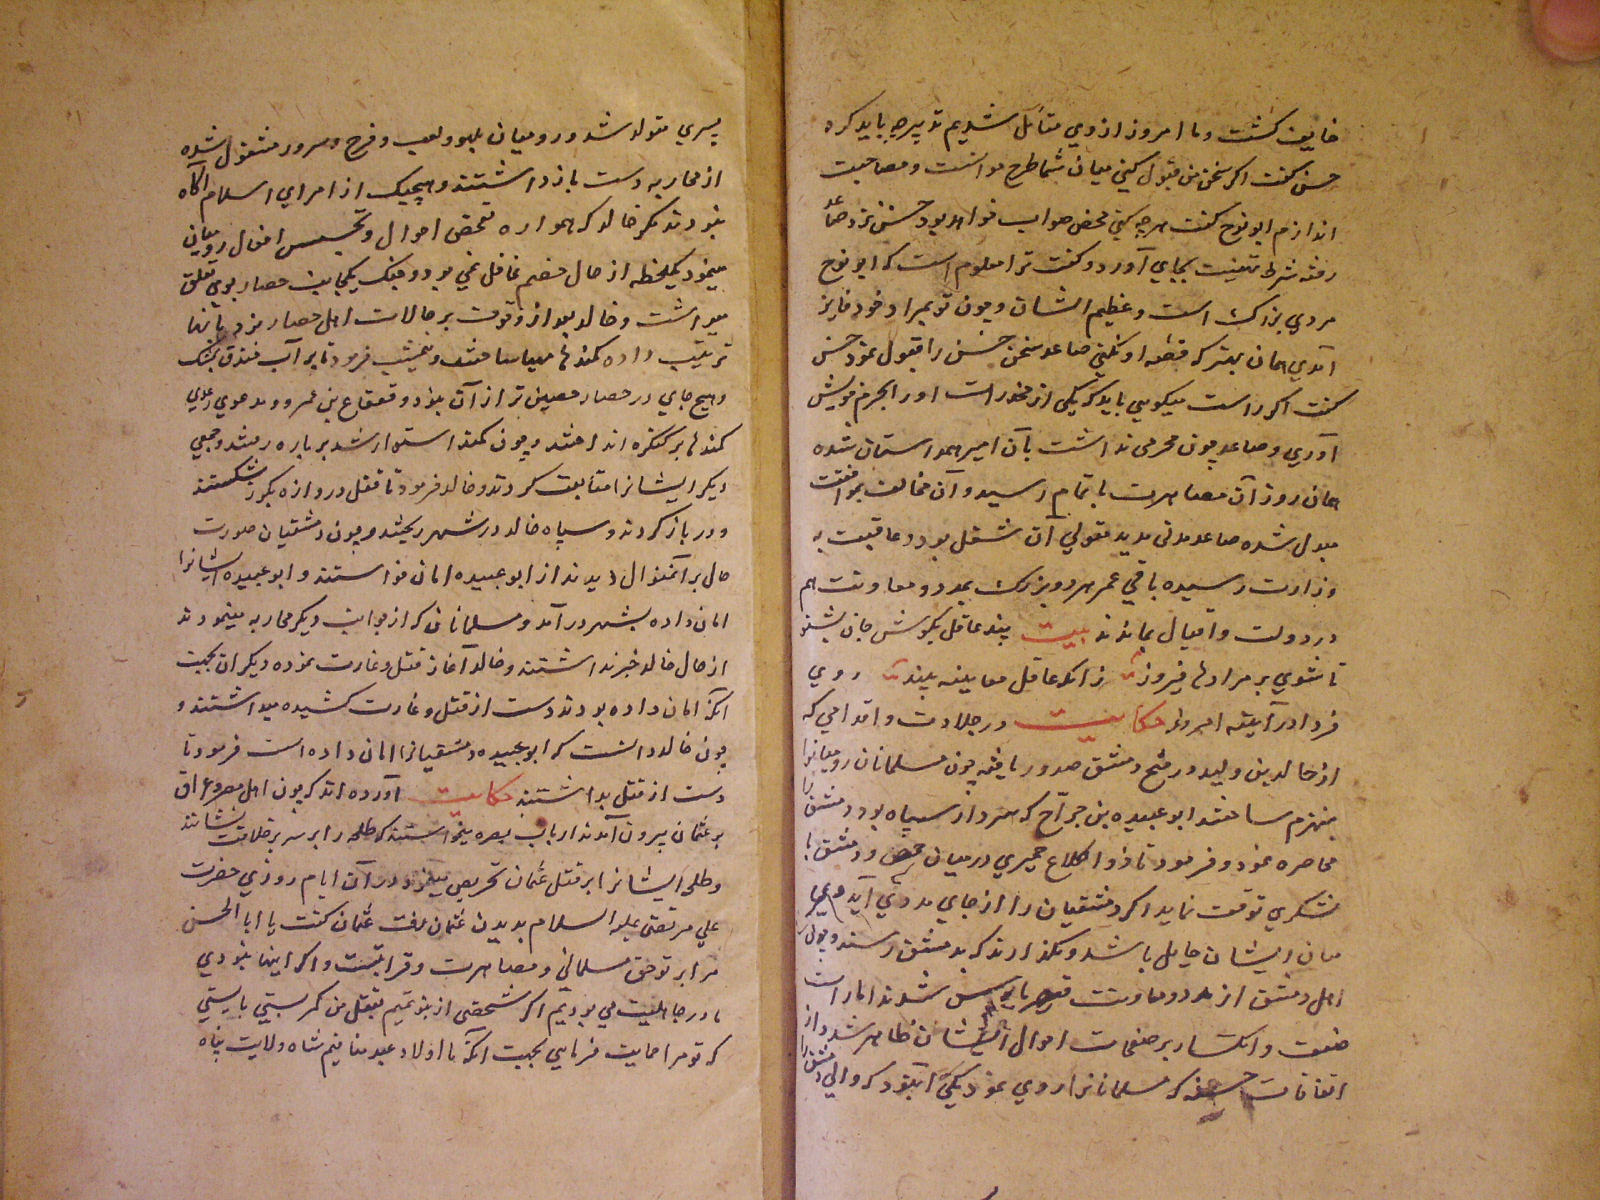 خایف کشت و ما امروز از وی متأمل شدیم تدبیر چه باید کرد
حسن کفت اکر سخن من قبول کنی میان شما طرح مواست و مصاحبت
اندازم ابو نوح کفت هر چه کنی محض صواب خواهد بود حسن نزد صاعد
رفته شرط تهنیت بجای آورد و کفت ترا معلوم است که ابو نوح
مردی بزرکست و عظیم الشان و چون تو بمراد خود فایز
آمدی همان بهتر که قطع او نکنی صاعد سخن حسن را قبول نمود حسن
کفت اکر راست میکویی باید که یکی از مخدرات او را بحرم خویش
آوری و صاعد چون محرمی نداشت بآن امیر همداستان شده
همان روز آن مصاهرت باتمام رسید و آن مخالفت بموافقت
مبدل شده صاعد مدتی مدید متولی آن شغل بود و عاقبت به
وزارت رسیده باقی عمر هر دو بزرک بمدد و معاونت هم
در دولت و اقبال بماندند بیت پند عاقل بکوش جان بشنو
تا شوی بر مرادها فیروز زانکه عاقل معاینه بیند روی
فردا در آینه امروز حکایت در جلادت و اقدامی که
از خالد بن ولید در فتح دمشق صدور یافته چون مسلمانان رومیانرا
منهزم ساختند ابو عبیده بن جراح که سردار سپاه بود دمشق را
محاصره نمود و فرمود تا ذو الکلاع حمیری در میان حمص و دمشق با
لشکری توقف نماید اکر دمشقیان را از جای مددی آید
میان ایشان حایل باشد و نکذارند که بدمشق رسند و چون
اهل دمشق از مدد و معاونت قیصر مایوس شدند امارات
ضعف و انکسار بر صفحات احوال ایشان ظاهر شد و از
اتفاقات حسنه که مسلمانانرا روی نمود یکی آن بود که والی دمشق را
پسری متولد شد و رومیان بلهو و لعب و فرح و سرور مشغول شده
از محاربه دست باز داشتند و هیچیک از امرای اسلام آکاه
نبودند مکر خالد که همواره تفحص احوال و تجسس افعال رومیان
مینمود و یکلحظه از حال خصم غافل نمی بود و جنک یکجانب حصار بوی تعلق
میداشت و خالد بعد از وقوف بر حالات اهل حصار نردبانها
ترتیب داده کمندها مهیا ساخت و نیمشب فرمود تا بر آب خندق
و هیچ جای در حصار حصین تر از آن نبود و قعقاع بن عمرو و مدعوی
کمندها بر کنکره انداختند و چون کمند استوار شد بر باره رفتند و جمعی
دیکر ایشانرا متابعت کردند و خالد فرمود تا قفل دروازه بکرز شکستند
و در باز کردند و سپاه خالد در شهر ریختند و چون دمشقیان صورت
حال بر آنمنوال دیدند از ابو عبیده امان خواستند و ابو عبیده ایشانرا
امان داده بشهر در آمد و مسلمانان که از جوانب دیکر محاربه مینمودند
از حال خالد خبر نداشتند و خالد آغاز قتل و غارت نموده دیکران بجهت
آنکه امان داده بودند دست از قتل و غارت کشیده میداشتند و
چون خالد دانست که ابو عبیده دمشقیانرا امان داده است فرمود تا
دست از قتل بداشتند حکایت آورده اند که چون اهل مصر و عراق
بر عثمان بیرون آمدند ارباب بصره میخواستند که طلحه را بر سریر خلافت نشانند
و طلحه ایشانرا بر قتل عثمان تحریص مینمود در آن ایام روزی حضرت
علی مرتضی علیه السلام بدیدن عثمان رفت عثمان کفت یا ابا الحسن
مرا بر تو حق مسلمانی و مصاهرت و قرابتست و اکر اینها نبودی
و در جاهلیت می بودیم اکر شخصی از بنو تمیم بقتل من کمر بستی بایستی
که تو مرا حمایت فرمایی بجهت آنکه ما اولاد عبد منافیم شاه ولایت پناه